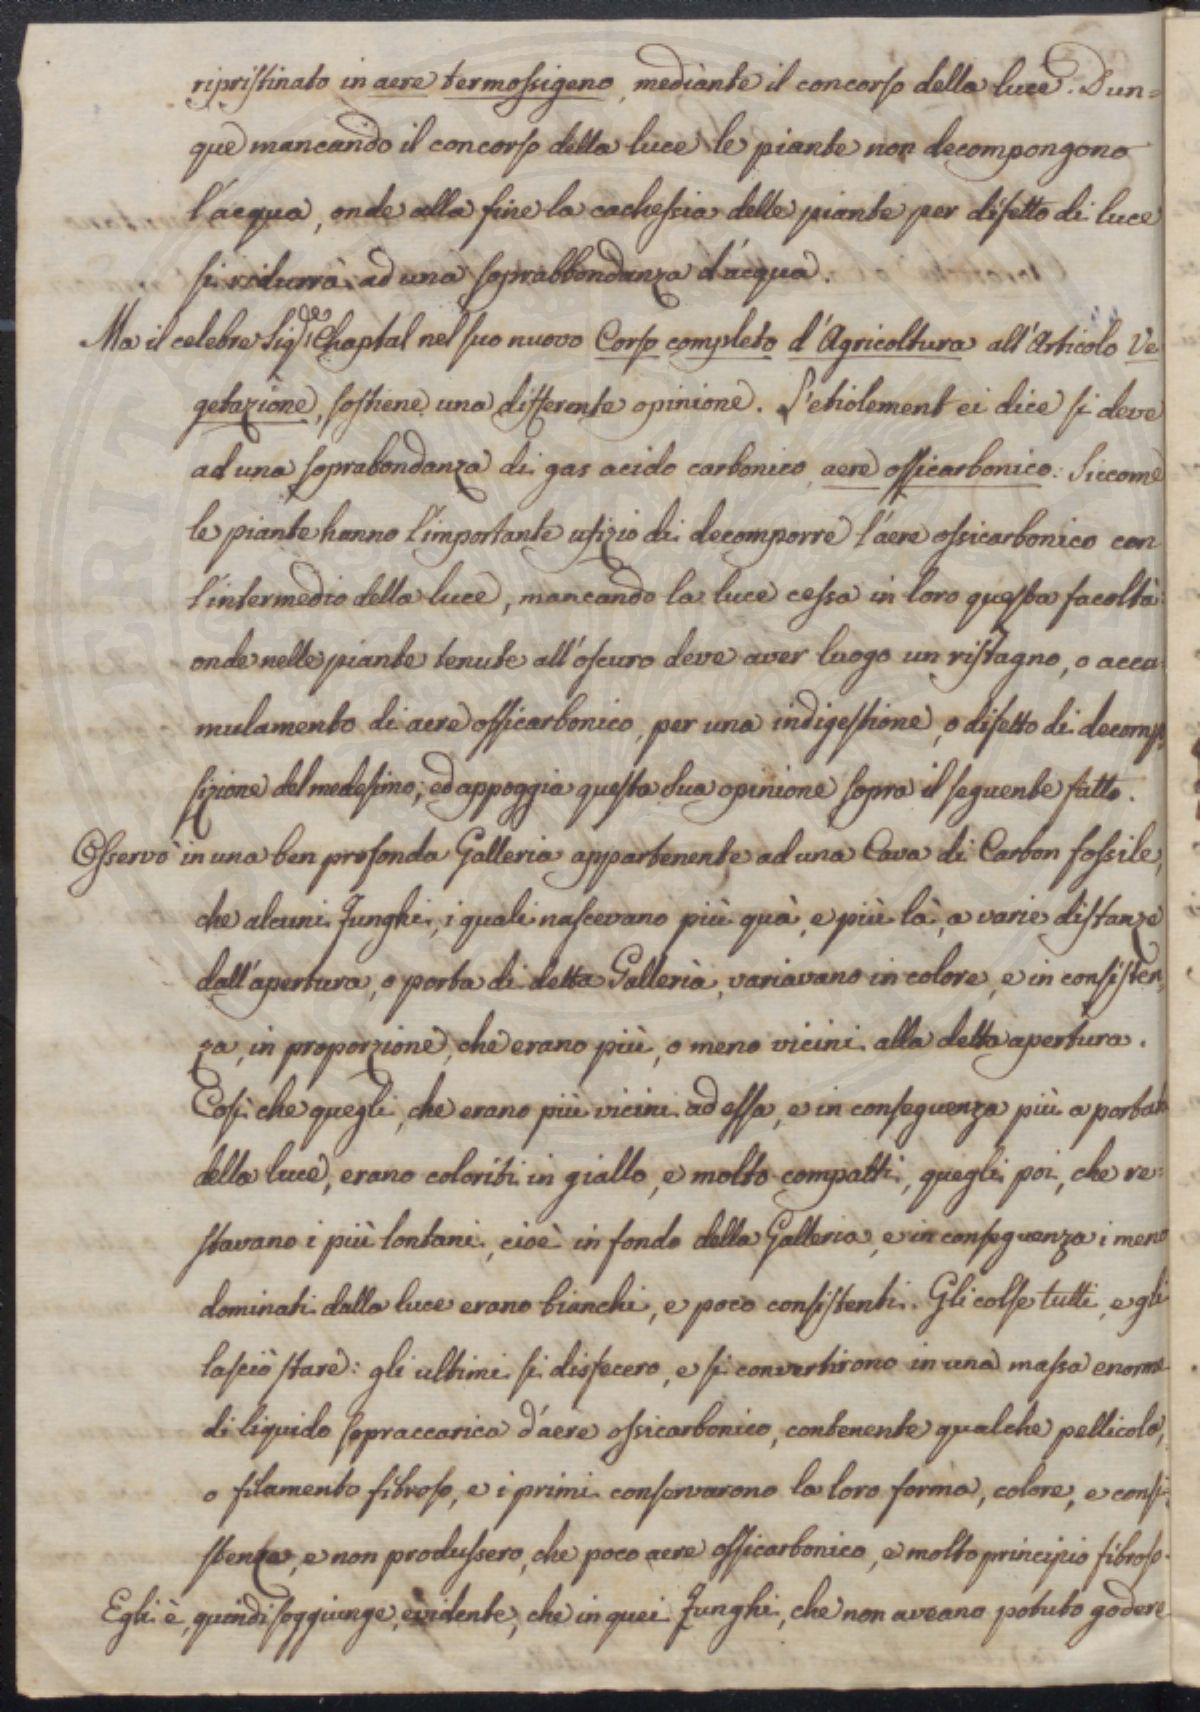 ripristinato in aere termossigeno, mediante il concorso della luce. Dun=
que mancando il concorso della luce le piante non decompongono
l'acqua, onde alla fine la cachessia delle piante per difetto di luce
si ridurrà ad una soprabbondanza d'acqua.
Ma il celebre Sig.r de Chaptal nel suo nuovo Corso completo d'Agricoltura all'Articolo Ve
getazione, sostiene una differente opinione. L'etiolement ei dice si deve
ad una soprabondanza di gas acido carbonico, aere ossicarbonico: Siccome
le piante hanno l'importante ufizio di decomporre l'aere ossicarbonico con
l'intermedio della luce, mancando la luce cessa in loro questa facoltà:
onde nelle piante tenute all'oscuro deve aver luogo un ristagno, o accu
mulamento di aere ossicarbonico, per una indigestione, o difetto di decompo
sizione del medesimo; ed appoggia questa sua opinione sopra il seguente fatto.
Osservò in una ben profonda Galleria appartenente ad una Cava di Carbon fossile,
che alcuni Funghi, i quali nascevano più quà, e più là, a varie distanze
dall'apertura, o porta di detta Galleria, variavano in colore, e in consisten
za, in proporzione, che erano più, o meno vicini alla detta apertura.
Così che quegli, che erano più vicini ad essa, e in conseguenza più a portata
della luce, erano coloriti in giallo, e molto compatti, quegli poi, che re=
stavano i più lontani, cioè in fondo della Galleria, e in conseguenza i meno
dominati dalla luce erano bianchi, e poco consistenti. Gli colse tutti, e gli
lasciò stare: gli ultimi si disfecero, e si convertirono in una massa enorme
di liquido sopraccarica d'aere ossicarbonico, contenente qualche pellicola,
o filamento fibroso, e i primi conservarono la loro forma, colore, e consi=
stenza, e non produssero, che poco aere ossicarbonico, e molto principio fibroso.
Egli è, quindi soggiunge, evidente, che in quei Funghi, che non aveano potuto godere